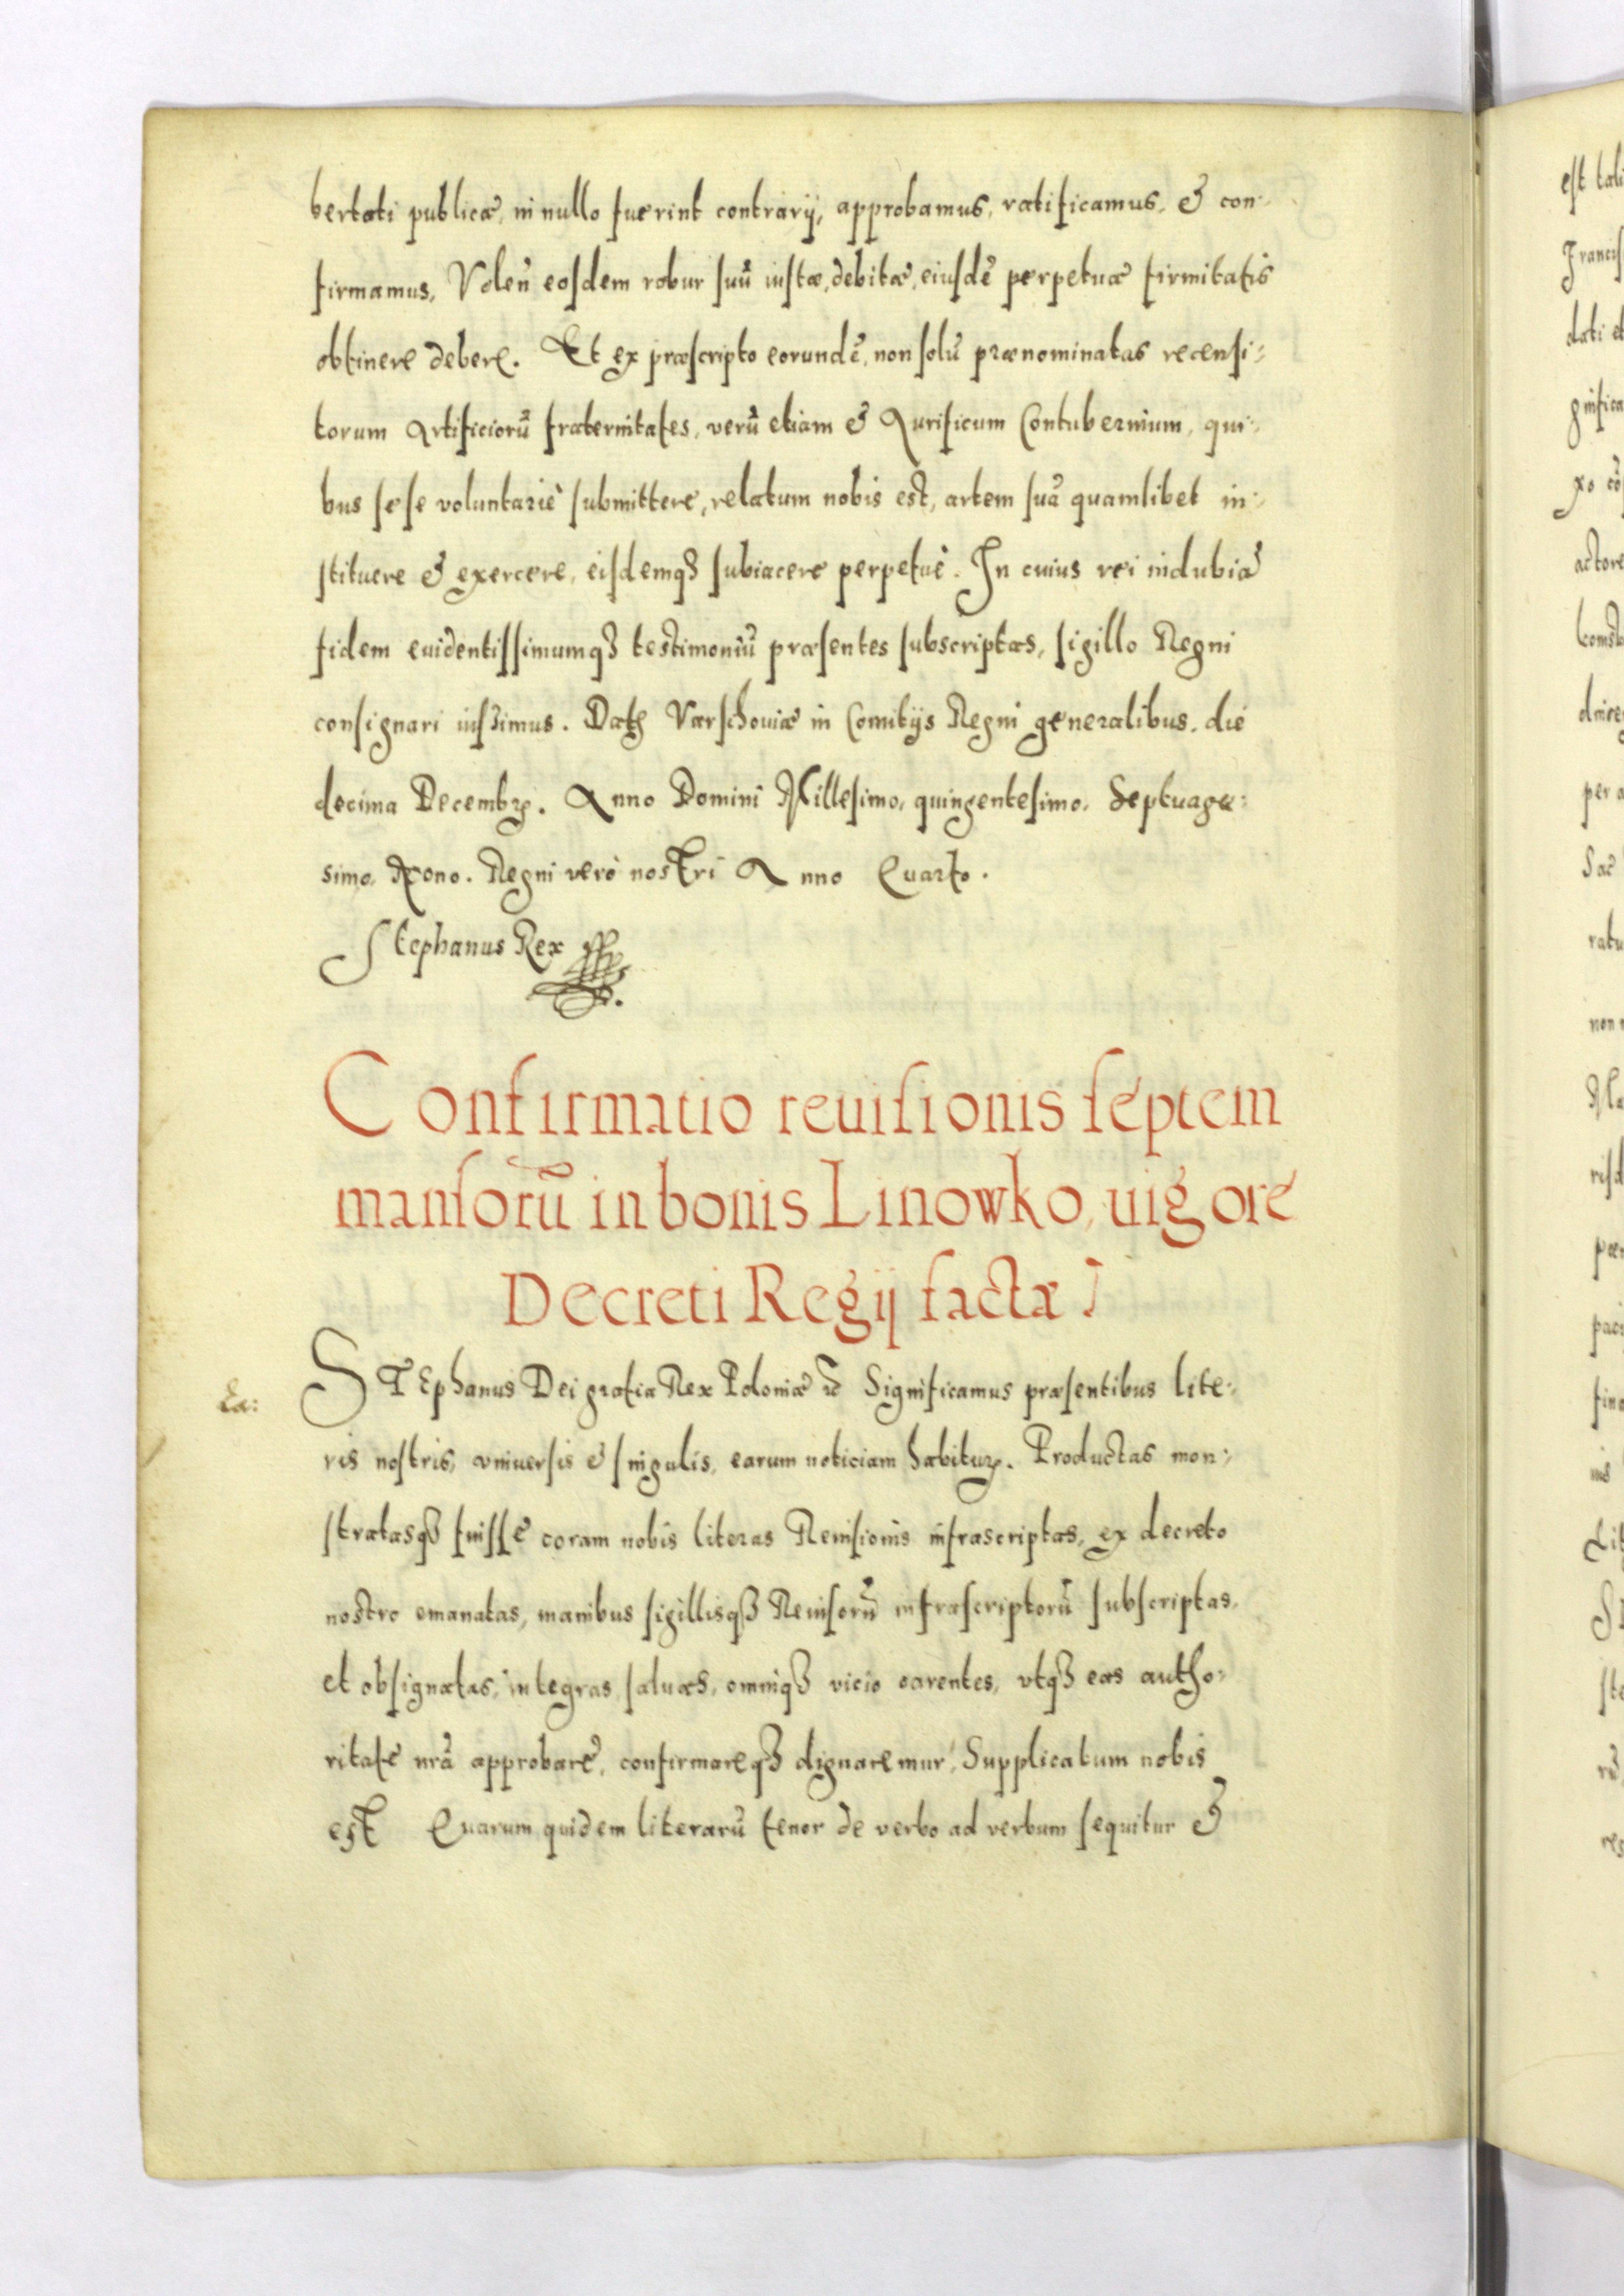 bertati publicæ, in nullo fuerint contrarij, approbamus, ratificamus, & con-
firmamus, Volen̄ eosdem robur suū iustæ, debitæ, eiusdē perpetuæ firmitatis
obtinere debere. Et ex præscripto eorundē, non solū prænominatas recensi-
torum Artificiorū fraternitates, verū etiam & Aurificum Contubernium, qui-
bus sese voluntariè submittere, relatum nobis est, artem suā quamlibet in-
stituere & exercere, eisdemqȝ subiacere perpetuè. In cuius rei indubiā
fidem euidentissimumqȝ testimoniū præsentes subscriptas, sigillo Regni
consignari iussimus. Datꝭ Varschouiæ in Comitijs Regni generalibus. die
decima Decembꝝ. Anno Domini Millesimo, quingentesimo, Septuage-
simo, Nono. Regni verò nostri Anno Quarto.
Stephanus Rex
Confirmatio reuisionis septem
mansorū in bonis Linowko, uigore
Decreti Regij factæ
Ea:
STEphanus Dei gratia Rex Poloniæ ꝛc̄ Significamus præsentibus lite-
ris nostris, vniuersis & singulis, earum noticiam habituꝝ. Productas mon-
stratasqȝ fuisse coram nobis literas Reuisionis infrascriptas, ex decreto
nostro emanatas, manibus sigillisqȝ Reuisorū infrascriptorū subscriptas,
et obsignatas, integras, saluas, omniqȝ vicio carentes, vtqȝ eas autho-
ritate nr̄a approbare, confirmareqȝ dignaremur, Supplicatum nobis
est Quarum quidem literarū tenor de verbo ad verbum sequitur &